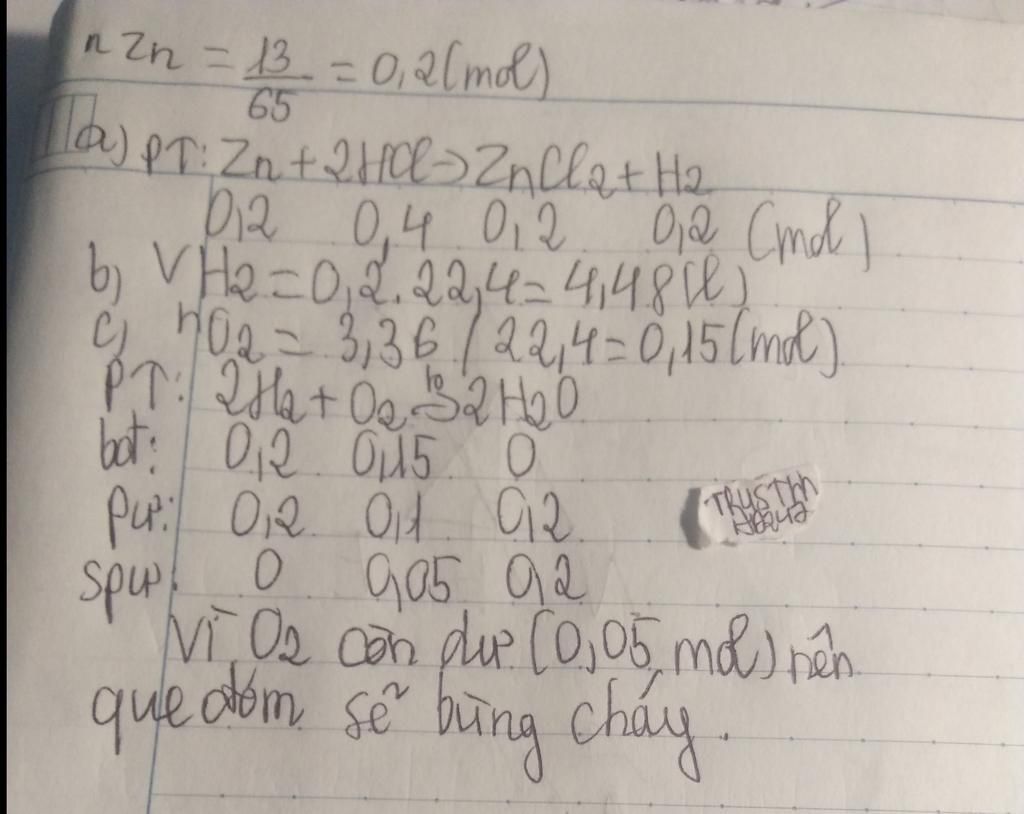 nZn = 13/65 = 0,2(mol)
a) PT: Zn + 2HCl → ZnCl2 + H2
0,2 0,4 0,2 0,2 (mol)
b) VH2 = 0,2.22,4 = 4,48(l)
c) nO2 = 3,36 / 22,4 = 0,15(mol)
PT: 2H2 + O2 to→ 2H2O
bđt: 0,2 0,15 0
pư: 0,2 0,1 0,2
spư: 0 0,05 0,2
Vì O2 còn dư (0,05 mol) nên
que đóm sẽ bùng cháy.